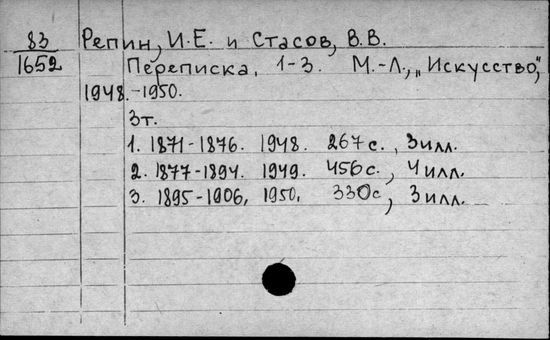 83 Репин, И.Е. и Стасов, В.В.
1652 Переписка, 1-3. М.-Л., "Искусство,"
1948.-1950.
3т.
1. 1871-1876. 1948. 267 с., 3 илл.
2. 1877-1894. 1949. 456 с., 4 илл.
3. 1895-1906, 1950, 330 с, 3 илл.